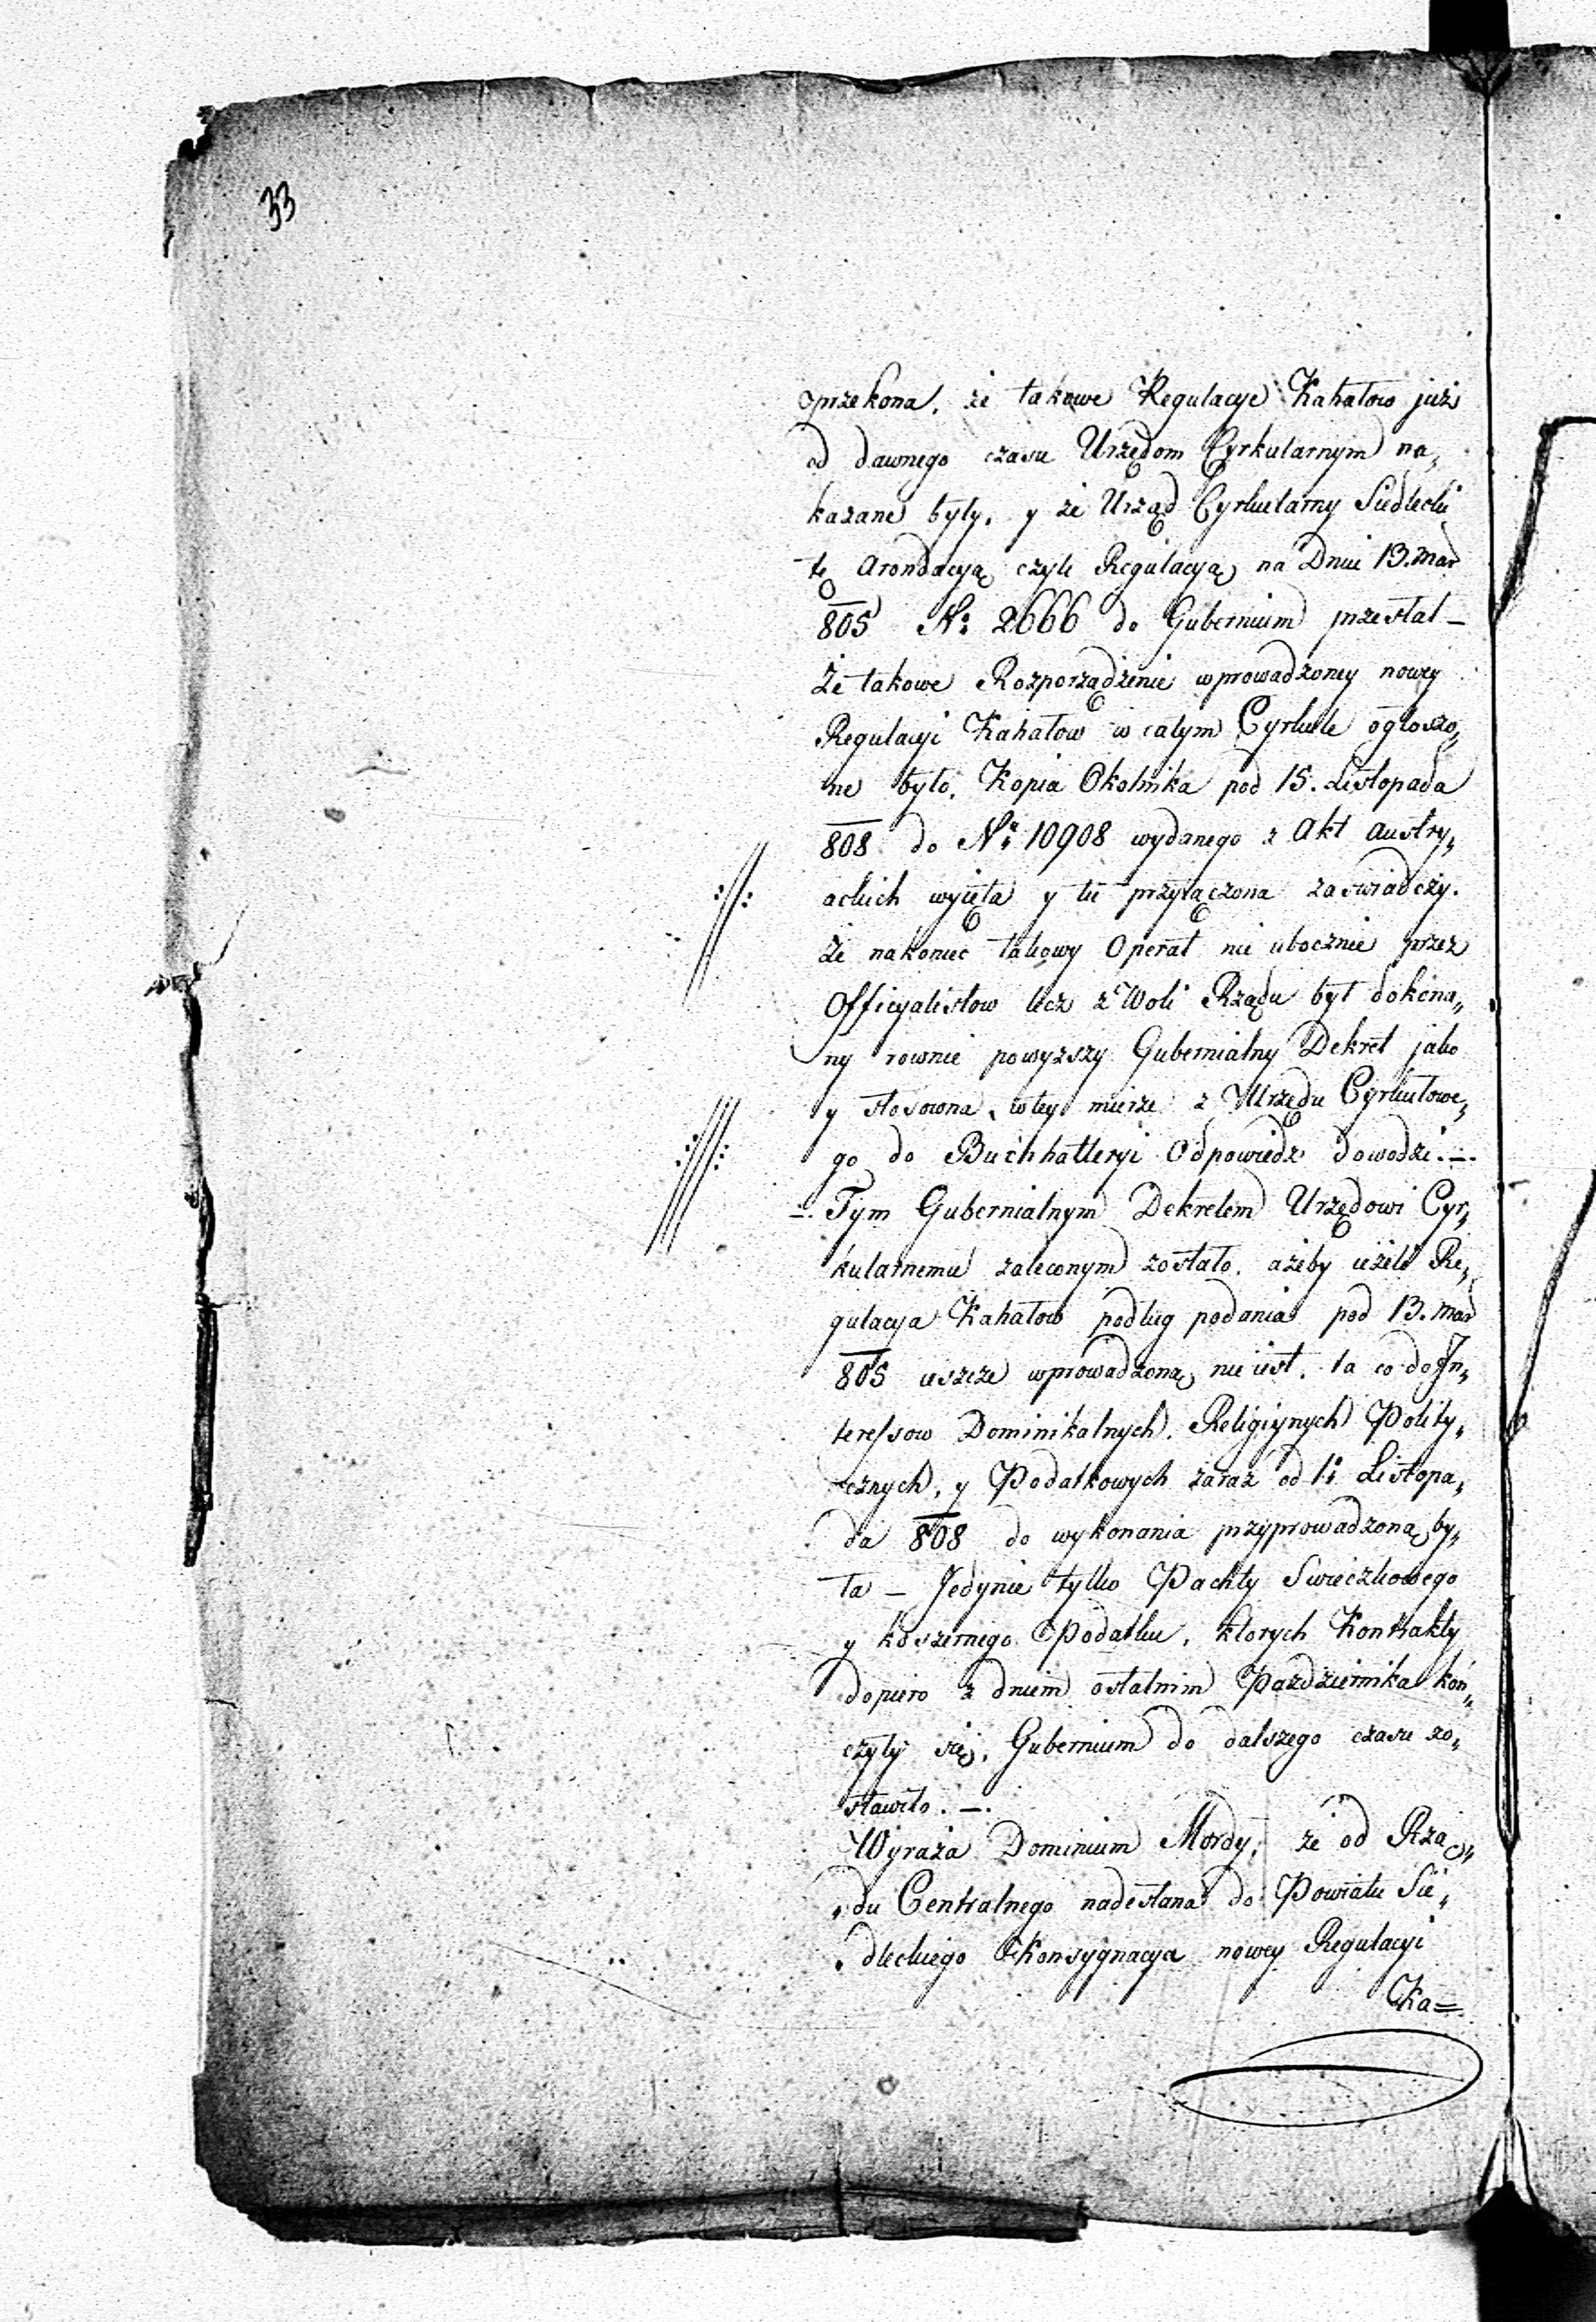 33
przekona, że takowe Regulacye Kahałow już
od dawnego czasu Urzędom Cyrkularnym na„
kazane były, y że Urząd Cyrkularny Siedlecki
tę Arondacyą czyli Regulacyą na Dniu 13. Mar
805 No 2666 do Gubernium przesłał –
Że takowe Rozporządzenie wprowadzoney nowey
Regulacyi Kahałow w całym Cyrkule ogłoszo„
ne było, Kopia Okolnika pod 15. Listopada
808 do No 10908 wydanego z Akt Austry„
ackich wyięta y tu przyłączona zaswiadczy.
Że nakoniec takowy Operat nie ubocznie przez
Officyalistow lecz z Woli Rządu był dokona„
ny rownie powyższy Gubernialny Dekret jako
y stosowna w tey mierze z Urzędu Cyrkułowe„
go do Buchhalteryi Odpowiedz dowodzi. –.
–. Tym Gubernialnym Dekretem Urzędowi Cyr„
kularnemu zaleconym zostało, ażeby ieżeli Re„
gulacya Kahałow podług podania pod 13. Mar
805 ieszcze wprowadzoną nie iest, ta co do In„
teressow Dominikalnych, Religiynych Polity„
cznych, y Podatkowych zaraz od 1o Listopa„
da 808 do wykonania przyprowadzoną by„
ła – Jedynie tylko Pachty Swieczkowego
y koszernego Podatku, ktorych Kontrakty
dopiero z dniem ostatnim Pazdziernika koń„
czyły się, Gubernium do dalszego czasu zo„
stawiło. –.
Wyraża Dominium Mordy, że od Rzą„
„du Centralnego nadesłana do Powiatu Sie„
„dleckiego Konsygnacya nowey Regulacyi
Ka=